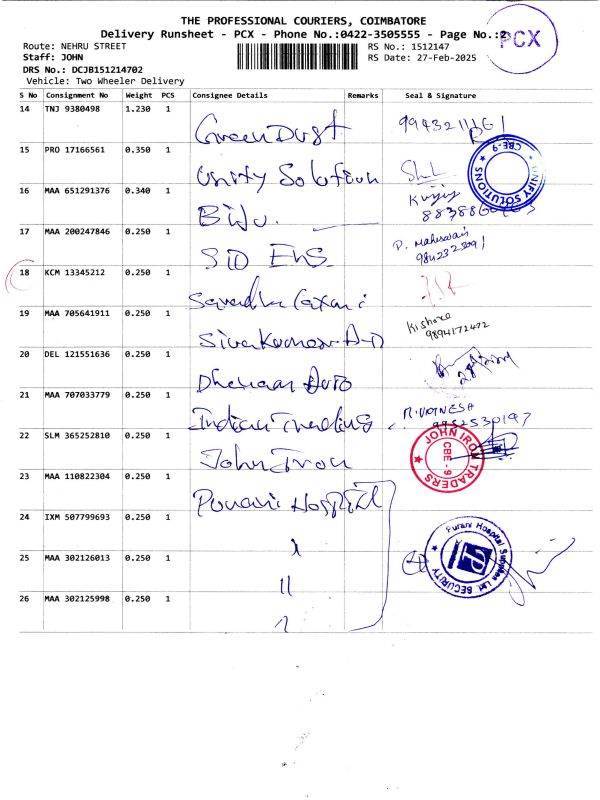 THE PROFESSIONAL COURIERS, COIMBATORE
Delivery Runsheet - PCX - Phone No.:0422-3505555 - Page No.:2
PCX
Route: NEHRU STREET
RS No.: 1512147
Staff: JOHN
RS Date: 27-Feb-2025
DRS No.: DCJB151214702
Vehicle: Two Wheeler Delivery
S No Consignment No Weight PCS Consignee Details Remarks Seal & Signature
14 TNJ 9380498 1.230 1 Green Dust
15 PRO 17166561 0.350 1 Unity Solution
UNIFY SOLUTIONS CBE-9
16 MAA 651291376 0.340 1 Biju.
17 MAA 200247846 0.250 1 SID EhS. P. Maheswari
9842323091
18 KCM 13345212 0.250 1
19 MAA 705641911 0.250 1 Sivakumar A-D Kishore
9894172472
20 DEL 121551636 0.250 1 Auto
21 MAA 707033779 0.250 1 Indian Trading
9952530197
22 SLM 365252810 0.250 1 John Iron
JOHN IRON TRADERS CBE - 9
23 MAA 110822304 0.250 1 Purani Hospital
24 IXM 507799693 0.250 1
Purani Hospital Supplies Ltd SECURITY
25 MAA 302126013 0.250 1 11
26 MAA 302125998 0.250 1